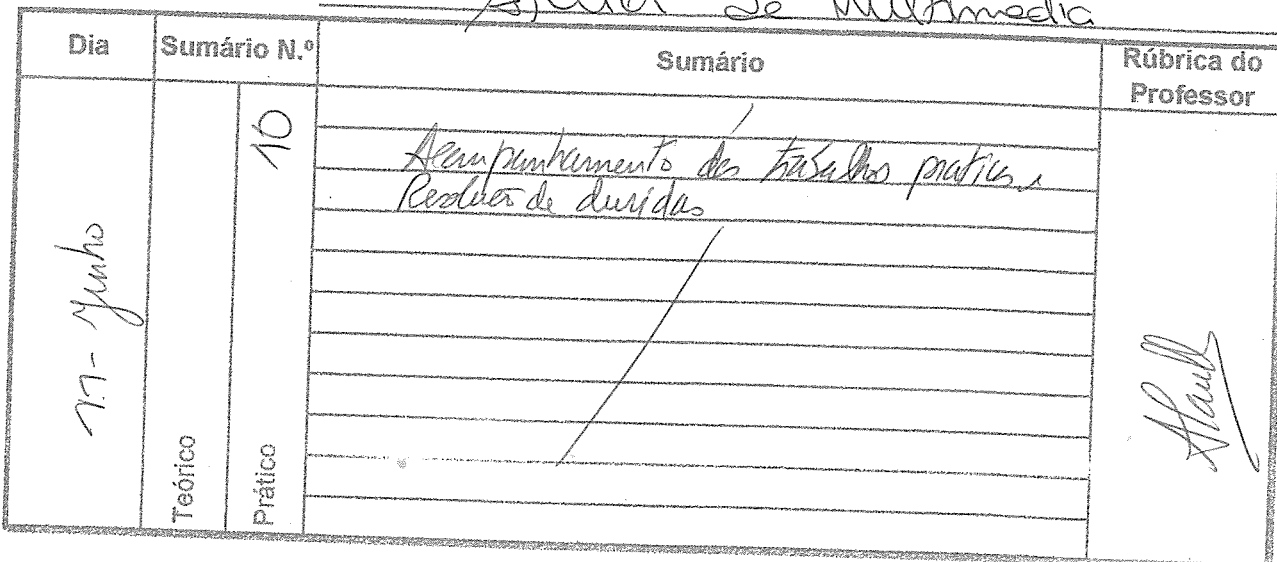 de Multimedia
Dia
Sumário N.º
Sumário
Rúbrica do
Professor
11- Junho
Teórico
Prático
10
Acompanhamento dos trabalhos praticos
Resolução de duvidas